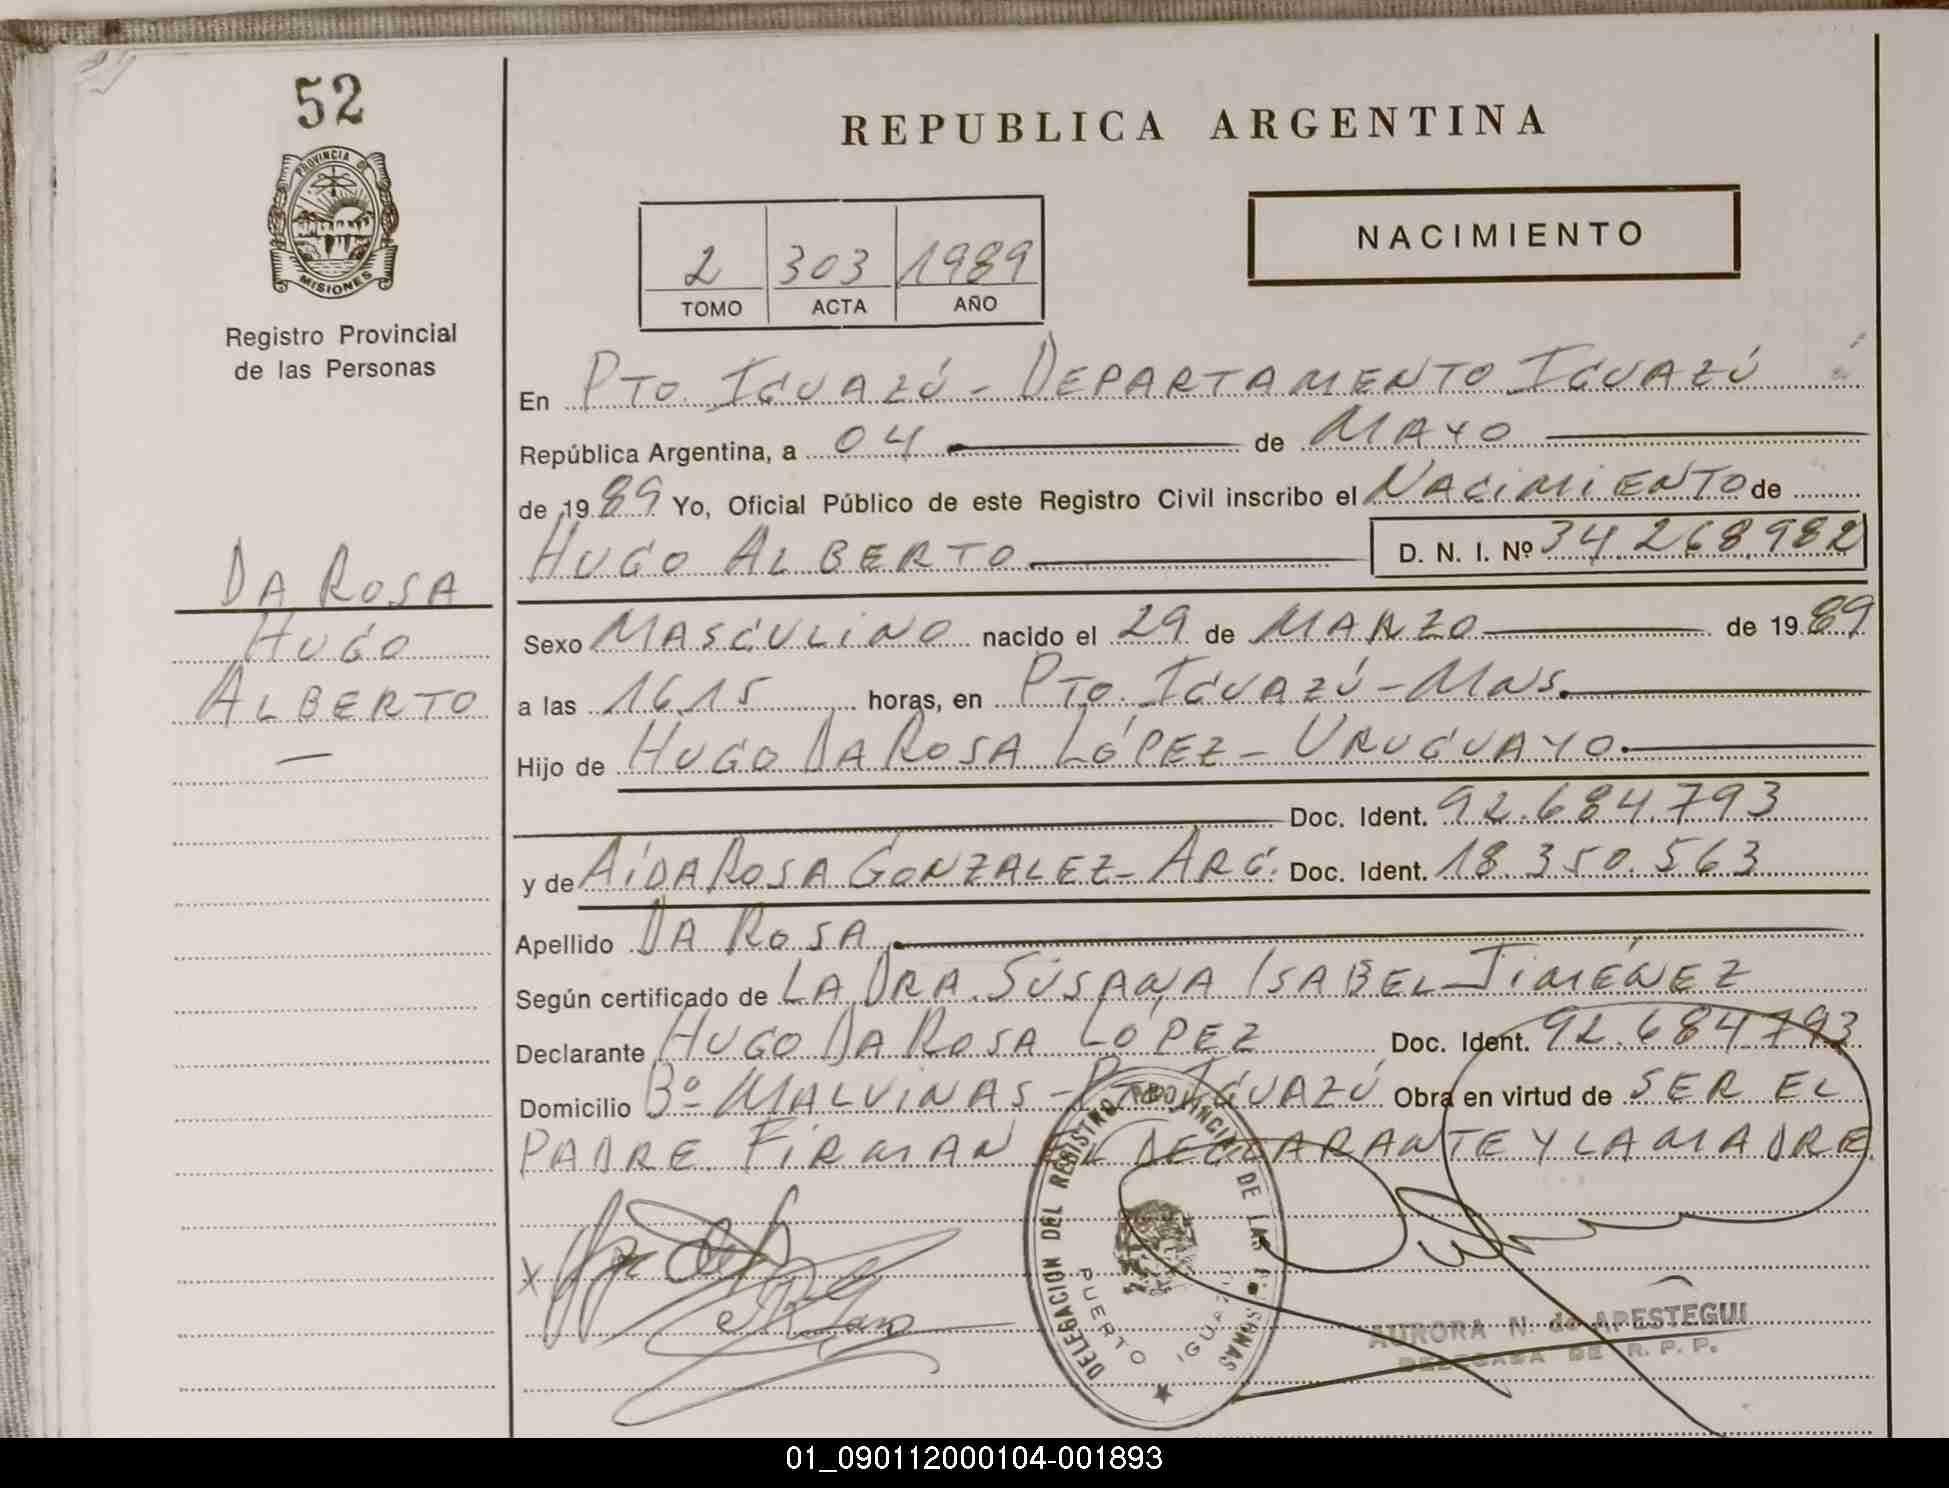 52
PROVINCIA DE
MISIONES
Registro Provincial
de las Personas
DA ROSA
HUGO
ALBERTO
—
REPUBLICA ARGENTINA
2 303 1989
TOMO ACTA AÑO
NACIMIENTO
En PTO. IGUAZÚ - DEPARTAMENTO IGUAZÚ
República Argentina, a 04 de MAYO
de 1989 Yo, Oficial Público de este Registro Civil inscribo el NACIMIENTO de
HUGO ALBERTO D. N. I. Nº 34.268.982
Sexo MASCULINO nacido el 29 de MARZO de 1989
a las 16.15 horas, en PTO. IGUAZÚ - MNS.
Hijo de HUGO DA ROSA LÓPEZ - URUGUAYO.
Doc. Ident. 92.684.793
y de AÍDA ROSA GONZALEZ - ARG. Doc. Ident. 18.350.563
Apellido DA ROSA
Según certificado de LA DRA. SUSANA ISABEL JIMÉNEZ
Declarante HUGO DA ROSA LÓPEZ Doc. Ident. 92.684793
Domicilio Bº MALVINAS - PTO. IGUAZÚ Obra en virtud de SER EL
PADRE. FIRMAN EL DECLARANTE Y LA MADRE.
X
DELEGACION DEL REGISTRO PROVINCIAL DE LAS PERSONAS
PUERTO IGUAZU
AURORA N. de APESTEGUI
DELEGADA DE R. P. P.
01_090112000104-001893